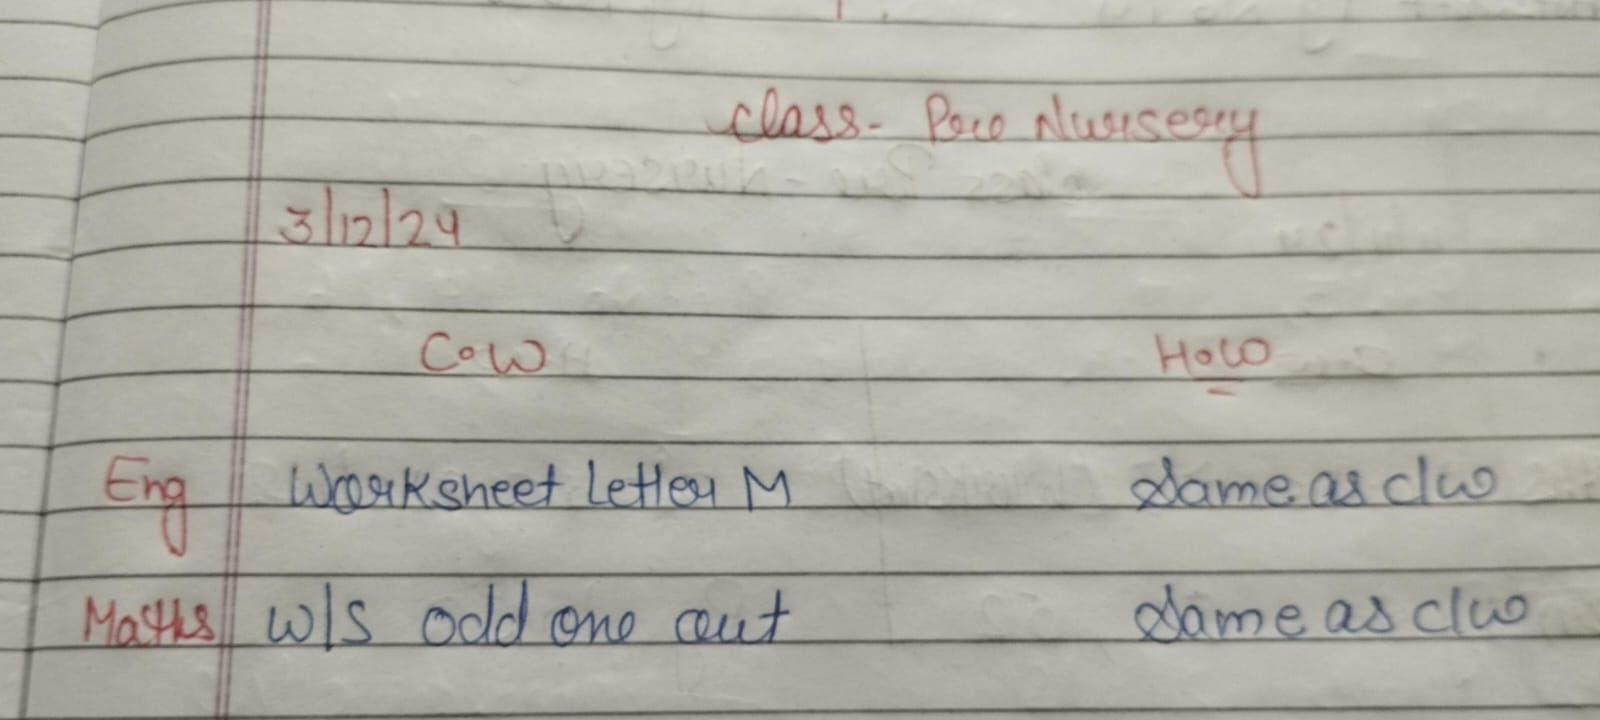 Class- Pre Nursery
3/12/24
C.W H.W
Eng Worksheet Letter M Same as c/w
Maths w/s odd one out Same as c/w